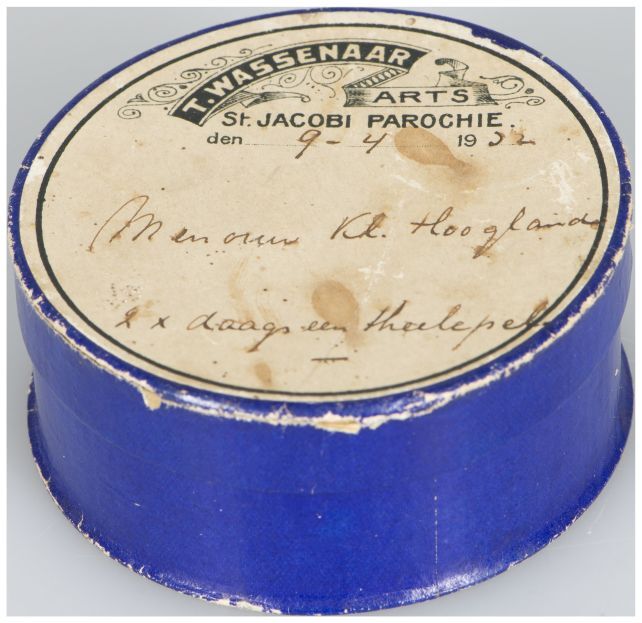 T. WASSENAAR
ARTS
St. JACOBI PAROCHIE.
den 9-4 1932
Mevrouw Kl. Hoogland
2 x daags een theelepel